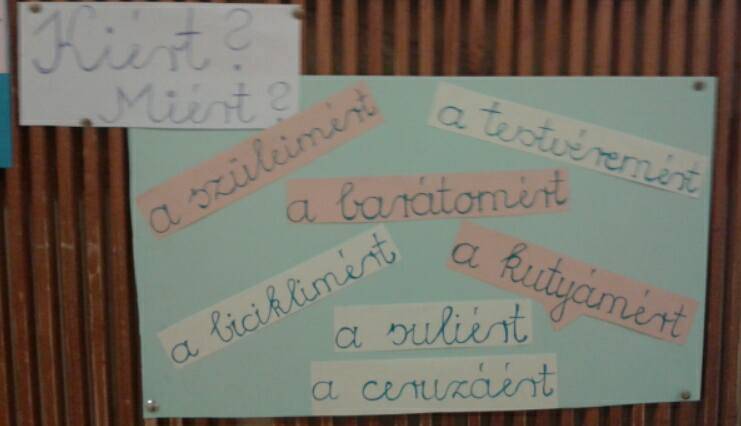 Kiért?
Miért?
a szüleimért
a testvéremért
a barátomért
a biciklimért
a kutyámért
a suliért
a ceruzáért